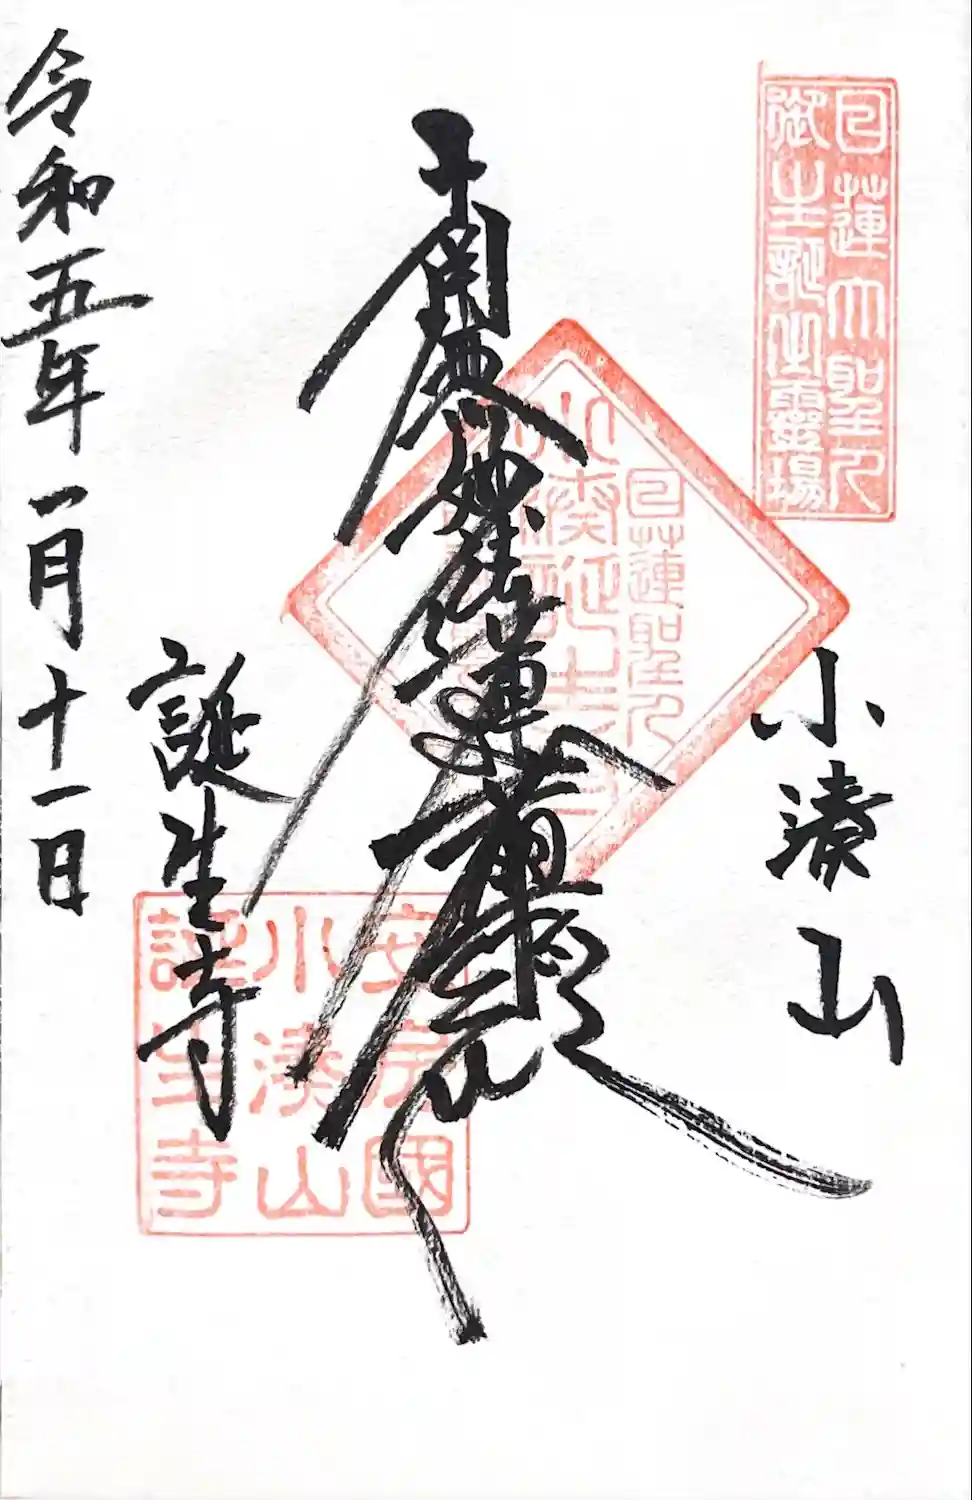 日蓮大聖人
御生誕之靈場
小湊山
南無妙法蓮華経
日蓮聖人
小湊誕生寺
安房國
小湊山
誕生寺
誕生寺
令和五年一月十一日